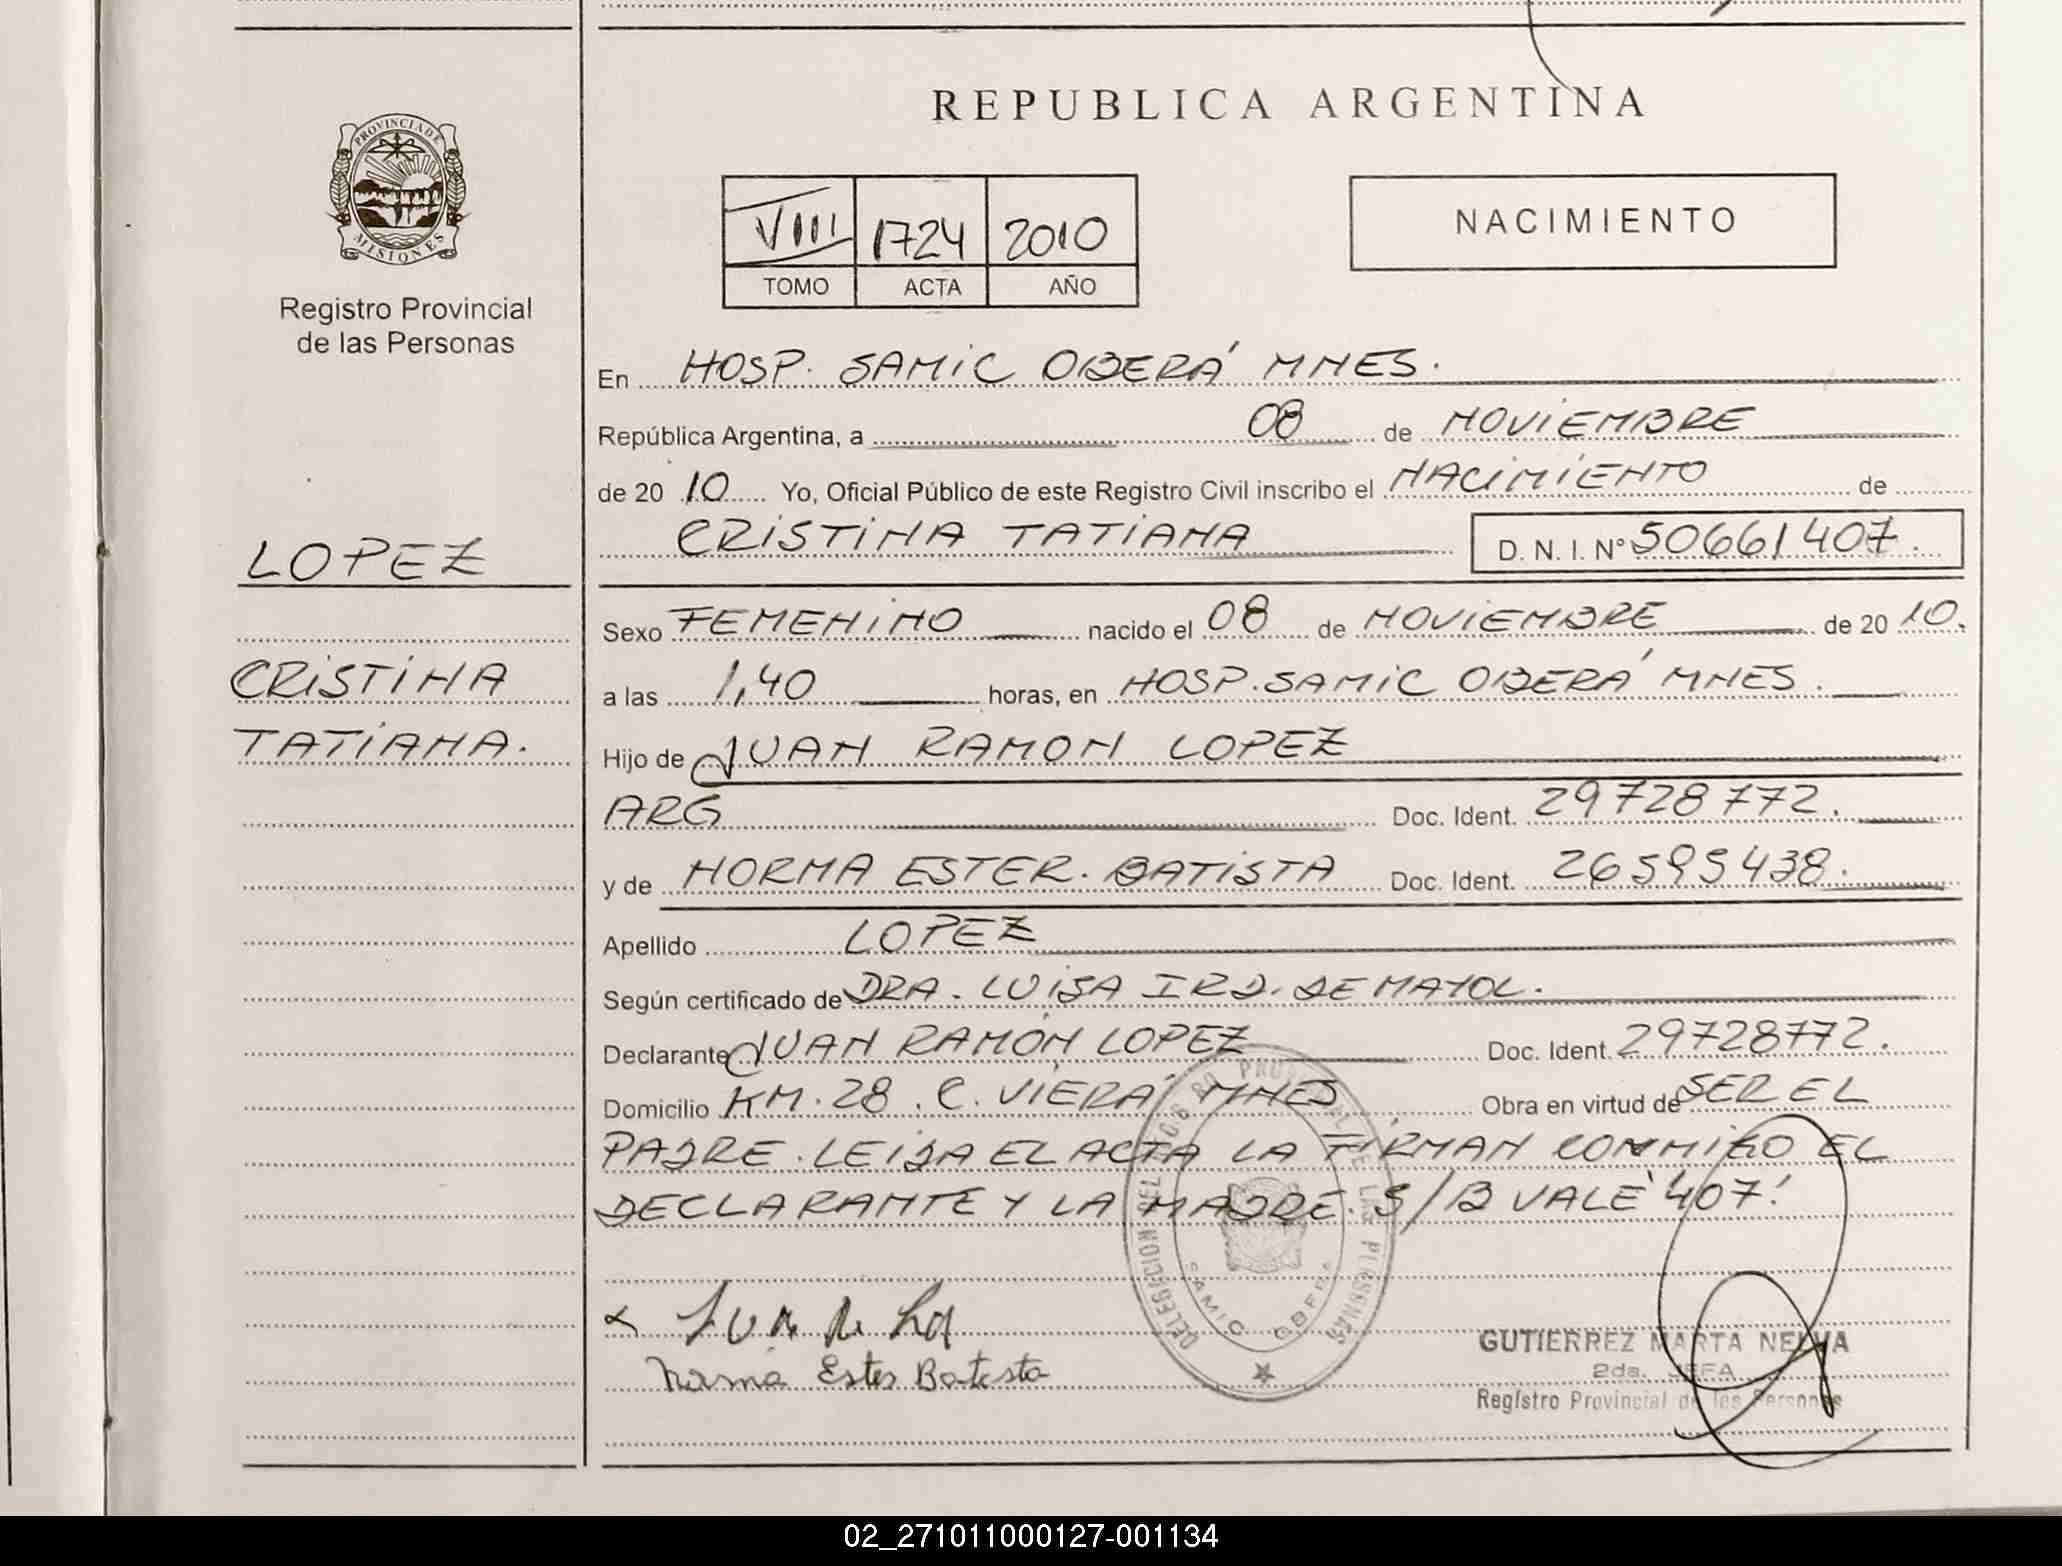 REPUBLICA ARGENTINA
PROVINCIA DE
MISIONES
Registro Provincial
de las Personas
VIII 1724 2010
TOMO ACTA AÑO
NACIMIENTO
En HOSP. SAMIC OBERÁ MNES.
República Argentina, a 08 de NOVIEMBRE
de 20 10 Yo, Oficial Público de este Registro Civil inscribo el NACIMIENTO de
CRISTINA TATIANA D. N. I. N° 50661407.
LOPEZ
CRISTINA
TATIANA.
Sexo FEMENINO nacido el 08 de NOVIEMBRE de 20 10.
a las 1,40 horas, en HOSP. SAMIC OBERÁ MNES.
Hijo de JUAN RAMON LOPEZ
ARG Doc. Ident. 29728772.
y de NORMA ESTER. BATISTA Doc. Ident. 26595438.
Apellido LOPEZ
Según certificado de DRA. LUISA DE MAYOL.
Declarante JUAN RAMÓN LOPEZ Doc. Ident. 29728772.
Domicilio KM. 28. C. VIERA MNES Obra en virtud de SER EL
PADRE. LEIDA EL ACTA LA FIRMAN CONMIGO EL
DECLARANTE Y LA MADRE. S/B VALE "407"
DELEGACION DEL REG PROVINCIAL DE LAS PERSONAS
SAMIC OBERA
Norma Ester Batista
GUTIERREZ MARTA NELVA
2da. JEFA
Registro Provincial de las Personas
02_271011000127-001134